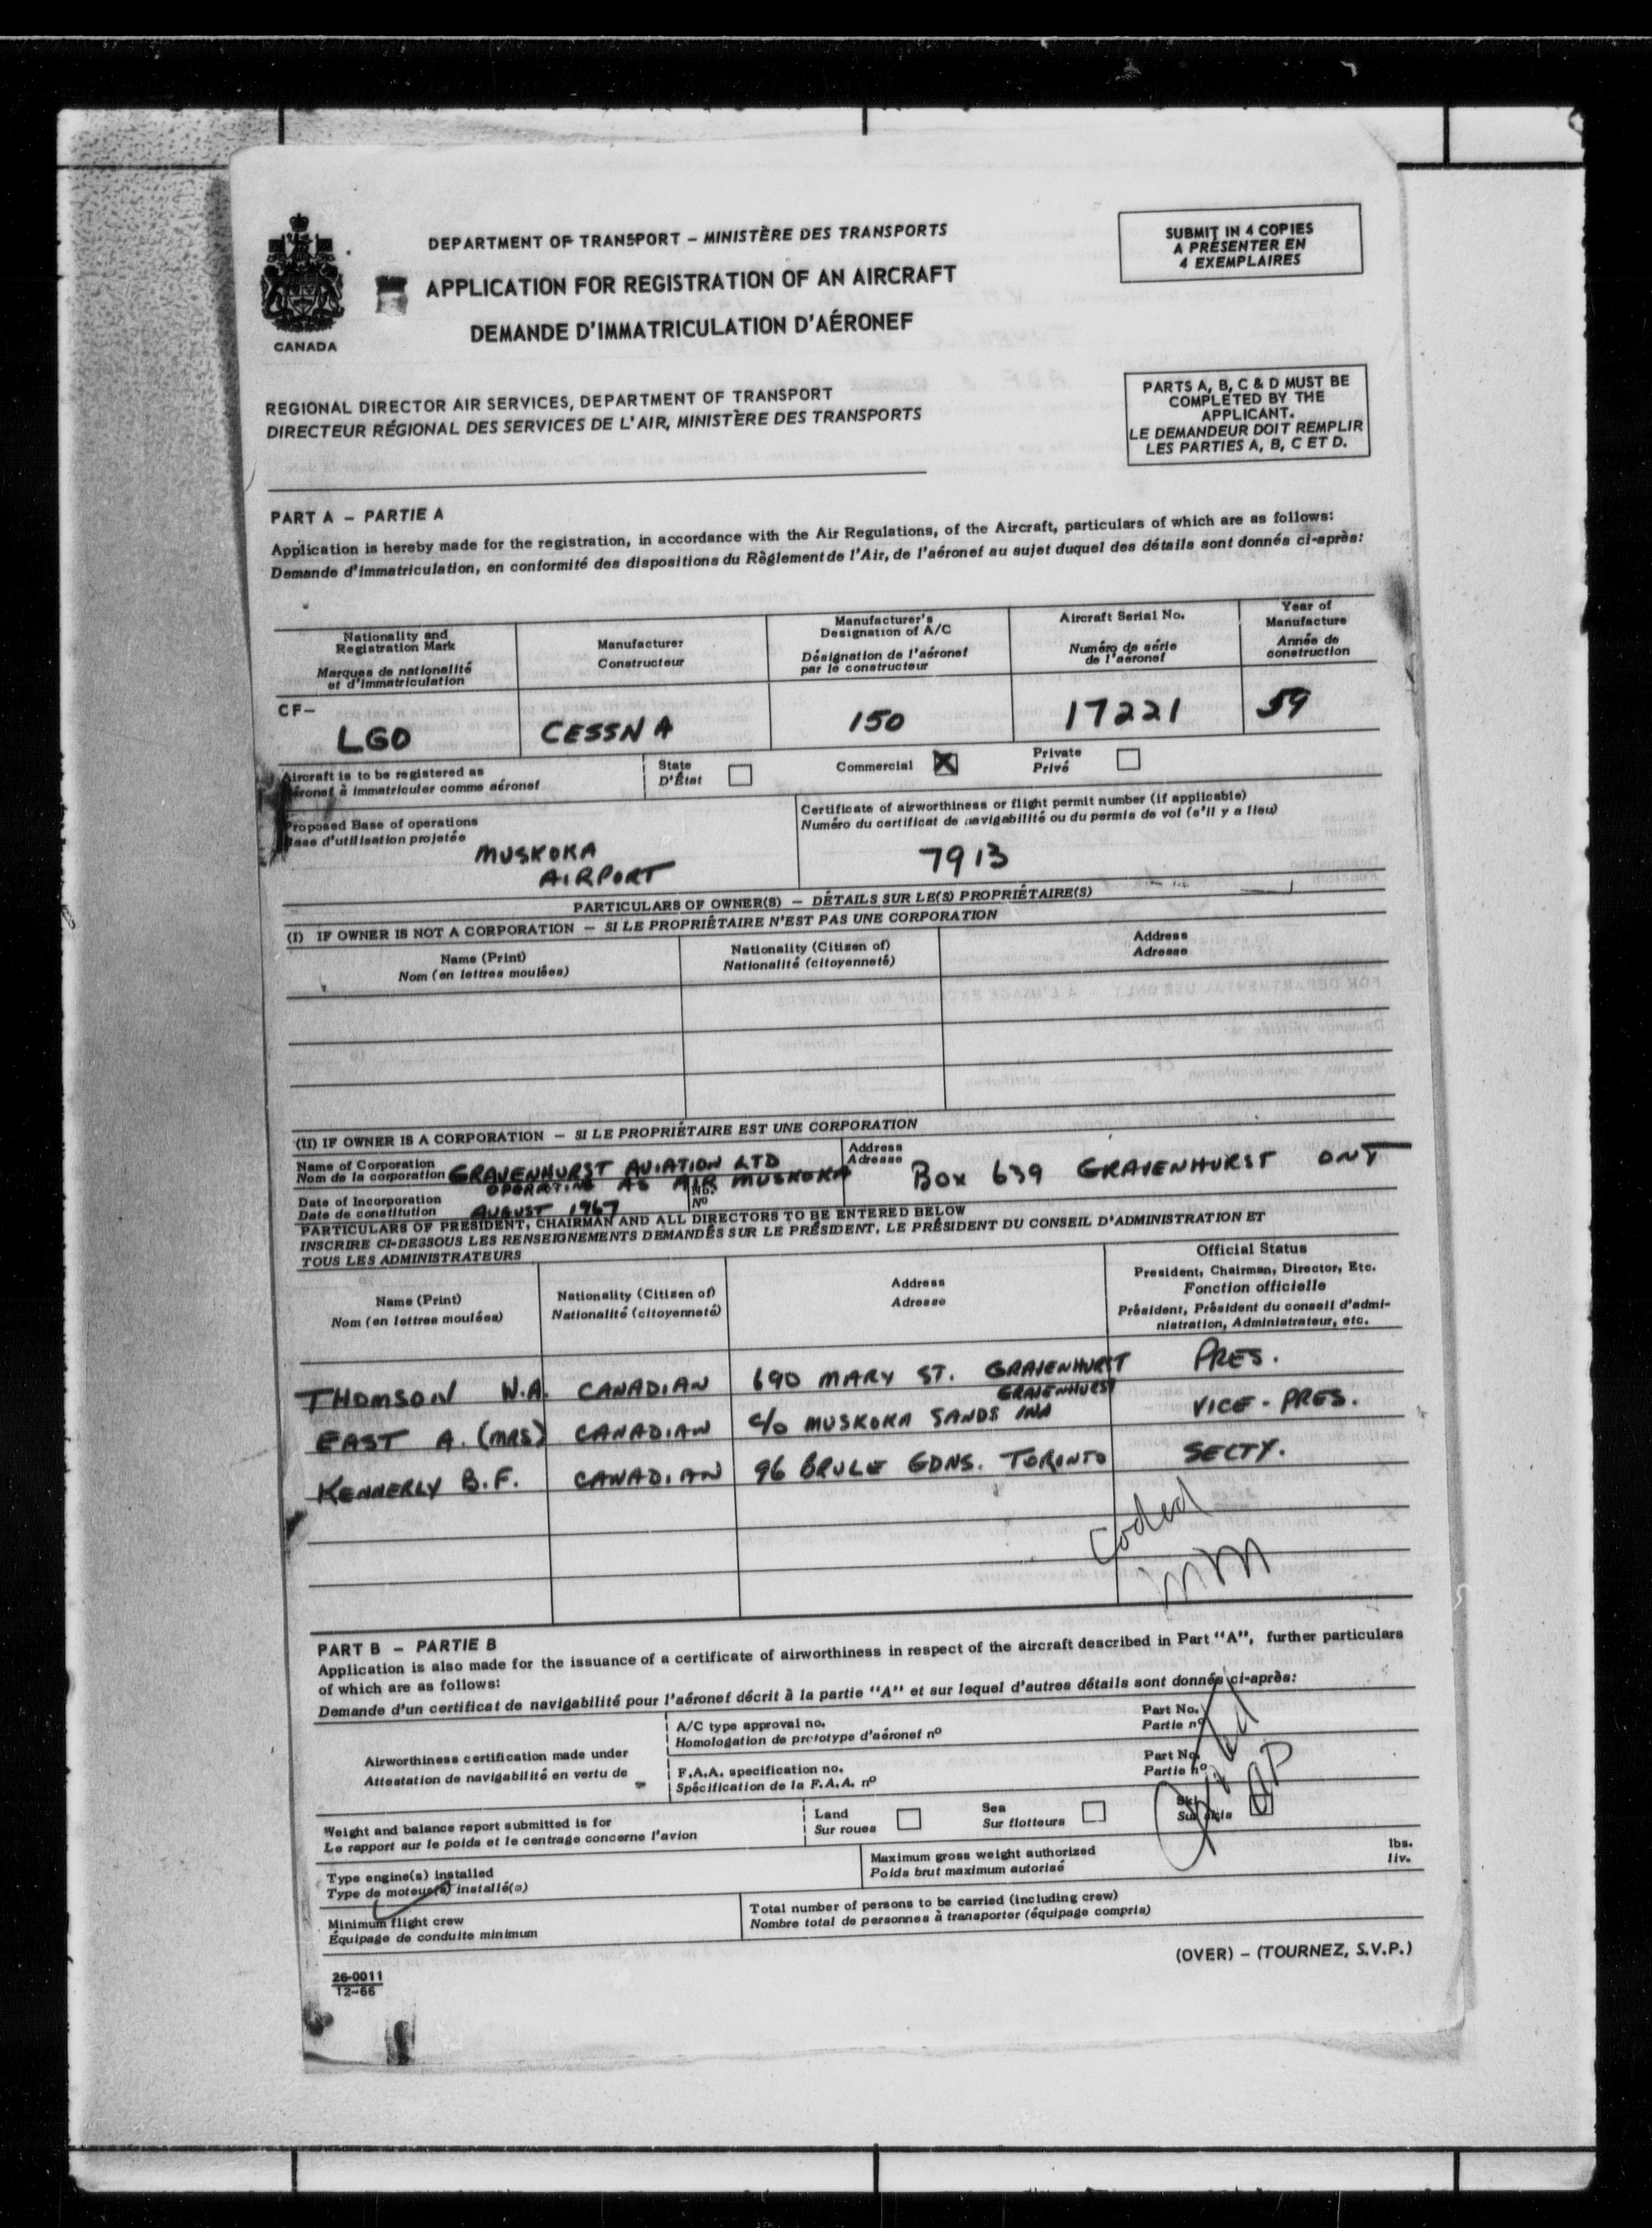 DEPARTMENT OF TRANSPORT – MINISTÈRE DES TRANSPORTS
APPLICATION FOR REGISTRATION OF AN AIRCRAFT
DEMANDE D'IMMATRICULATION D'AÉRONEF
CANADA
SUBMIT IN 4 COPIES
A PRÉSENTER EN
4 EXEMPLAIRES
REGIONAL DIRECTOR AIR SERVICES, DEPARTMENT OF TRANSPORT
DIRECTEUR RÉGIONAL DES SERVICES DE L'AIR, MINISTÈRE DES TRANSPORTS
PARTS A, B, C & D MUST BE
COMPLETED BY THE
APPLICANT.
LE DEMANDEUR DOIT REMPLIR
LES PARTIES A, B, C ET D.
PART A – PARTIE A
Application is hereby made for the registration, in accordance with the Air Regulations, of the Aircraft, particulars of which are as follows:
Demande d'immatriculation, en conformité des dispositions du Règlement de l'Air, de l'aéronef au sujet duquel des détails sont donnés ci-après:
Nationality and
Registration Mark
Marques de nationalité
et d'immatriculation
Manufacturer
Constructeur
Manufacturer's
Designation of A/C
Désignation de l'aéronef
par le constructeur
Aircraft Serial No.
Numéro de série
de l'aéronef
Year of
Manufacture
Année de
construction
CF–
LGO
CESSNA
150
17221
59
Aircraft is to be registered as
Aéronef à immatriculer comme aéronef
State
D'État
Commercial
Private
Privé
Proposed Base of operations
Base d'utilisation projetée
MUSKOKA
AIRPORT
Certificate of airworthiness or flight permit number (if applicable)
Numéro du certificat de navigabilité ou du permis de vol (s'il y a lieu)
7913
PARTICULARS OF OWNER(S) – DÉTAILS SUR LE(S) PROPRIÉTAIRE(S)
(I) IF OWNER IS NOT A CORPORATION – SI LE PROPRIÉTAIRE N'EST PAS UNE CORPORATION
Name (Print)
Nom (en lettres moulées)
Nationality (Citizen of)
Nationalité (citoyenneté)
Address
Adresse
(II) IF OWNER IS A CORPORATION – SI LE PROPRIÉTAIRE EST UNE CORPORATION
Name of Corporation
Nom de la corporation
GRAVENHURST AVIATION LTD
OPERATING AS AIR MUSKOKA
Address
Adresse
BOX 639 GRAVENHURST ONT
Date of Incorporation
Date de constitution
AUGUST 1967
No.
Nº
PARTICULARS OF PRESIDENT, CHAIRMAN AND ALL DIRECTORS TO BE ENTERED BELOW
INSCRIRE CI-DESSOUS LES RENSEIGNEMENTS DEMANDÉS SUR LE PRÉSIDENT, LE PRÉSIDENT DU CONSEIL D'ADMINISTRATION ET
TOUS LES ADMINISTRATEURS
Name (Print)
Nom (en lettres moulées)
Nationality (Citizen of)
Nationalité (citoyenneté)
Address
Adresse
Official Status
President, Chairman, Director, Etc.
Fonction officielle
Président, Président du conseil d'admi-
nistration, Administrateur, etc.
THOMSON W.A. CANADIAN 690 MARY ST. GRAVENHURST PRES.
GRAVENHURST
EAST A. (MRS) CANADIAN C/O MUSKOKA SANDS INN VICE-PRES.
KENNERLY B.F. CANADIAN 96 BRULE GDNS. TORONTO SECTY.
Coded
MM
PART B – PARTIE B
Application is also made for the issuance of a certificate of airworthiness in respect of the aircraft described in Part "A", further particulars
of which are as follows:
Demande d'un certificat de navigabilité pour l'aéronef décrit à la partie "A" et sur lequel d'autres détails sont donnés ci-après:
Airworthiness certification made under
Attestation de navigabilité en vertu de
A/C type approval no.
Homologation de prototype d'aéronef nº
Part No.
Partie nº
F.A.A. specification no.
Spécification de la F.A.A. nº
Part No.
Partie nº
Weight and balance report submitted is for
Le rapport sur le poids et le centrage concerne l'avion
Land
Sur roues
Sea
Sur flotteurs
Ski
Sur skis
Type engine(s) installed
Type de moteur(s) installé(s)
Maximum gross weight authorized
Poids brut maximum autorisé
lbs.
liv.
Minimum flight crew
Équipage de conduite minimum
Total number of persons to be carried (including crew)
Nombre total de personnes à transporter (équipage compris)
(OVER) – (TOURNEZ, S.V.P.)
26-0011
12-66